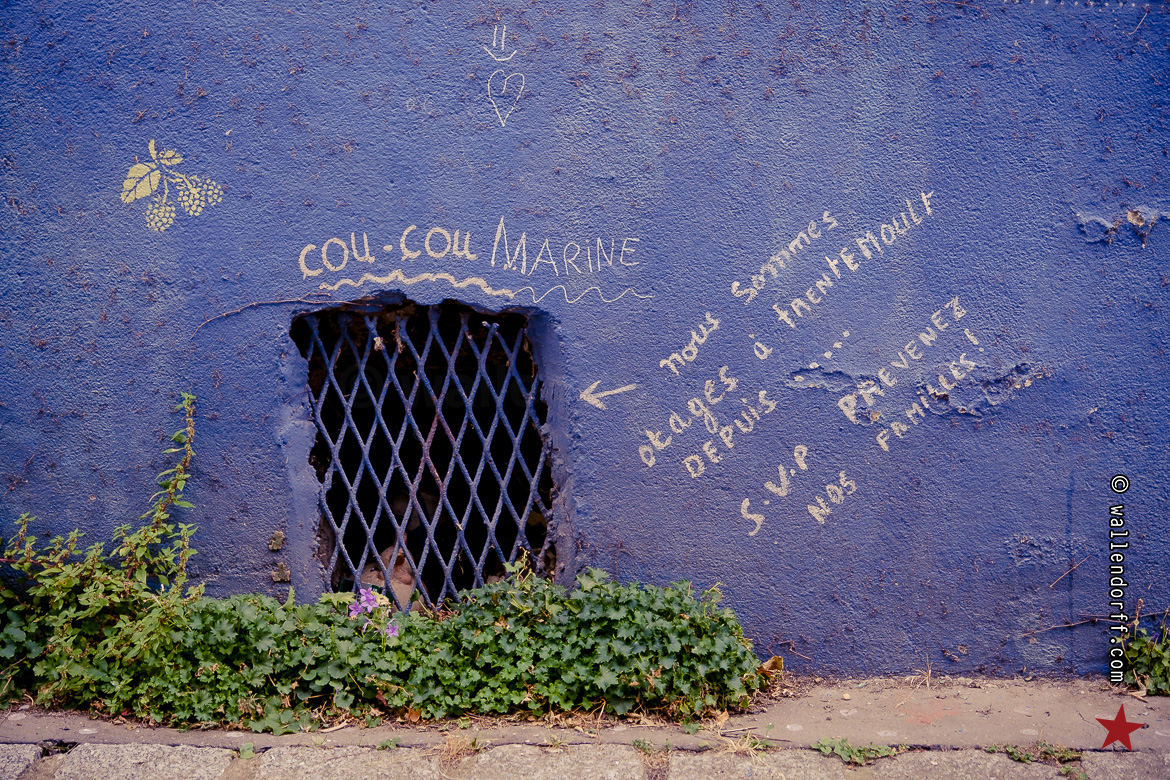 COU-COU MARINE
nous sommes
otages à trenteMoult
DEPUIS .....
S.V.P PREVENEZ
NOS FAMILLES!
© wallendorff.com